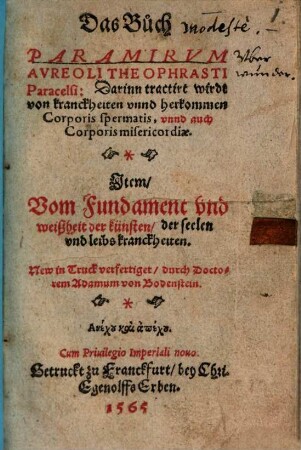 Das Bůch modestè. 1
PARAMIRVM Vber
AVREOLI THEOPHRASTI wunder.
Paracelsi: Darinn tractirt wirdt
von kranckheiten vnnd herkommen
Corporis spermatis, vnnd auch
Corporis misericordiæ.
Item/
Vom Fundament vnd
weißheit der künsten/ der seelen
vnd leibs kranckheiten.
New in Truck verfertiget/ durch Docto-
rem Adamum von Bodenstein.
Ανέχου καὶ ἀπέχου.
Cum Priuilegio Imperiali nouo.
Getruckt zu Franckfurt/ bey Chri.
Egenolffs Erben.
1565